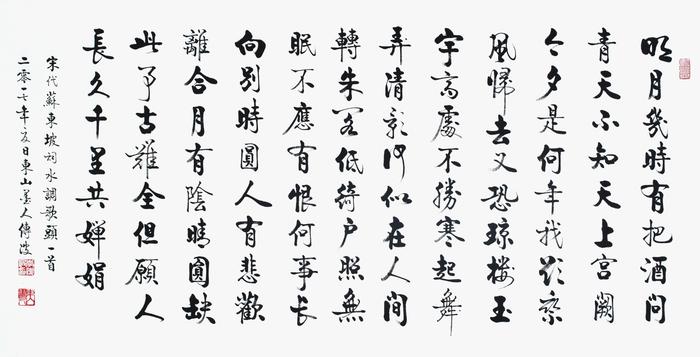 明月幾時有把酒問
青天不知天上宮闕
今夕是何年我欲乘
風歸去又恐瓊樓玉
宇高處不勝寒起舞
弄清影何似在人間
轉朱閣低綺户照無
眠不應有恨何事长
向别時圓人有悲歡
離合月有陰晴圓缺
此事古難全但願人
長久千里共嬋娟
宋代蘇東坡詞水調歌頭一首
二零一七年夏日東山墨人傳